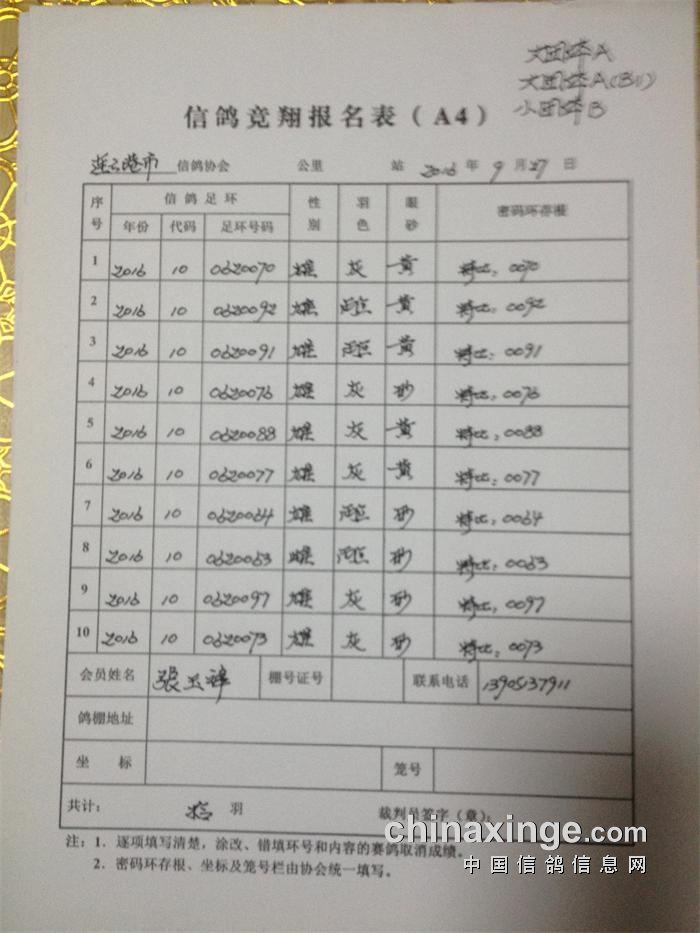 大团体A
大团体A(B11)
小团体B
信鸽竞翔报名表（A4）
连云港市 信鸽协会 公里 站 2016 年 9 月 27 日
序号 信鸽足环 性别 羽色 眼砂 密码环存根
年份 代码 足环号码
1 2016 10 0620070 雄 灰 黄 特比：0070
2 2016 10 0620092 雄 雨点 黄 特比：0092
3 2016 10 0620091 雄 雨点 黄 特比：0091
4 2016 10 0620076 雄 灰 砂 特比：0076
5 2016 10 0620088 雄 灰 黄 特比：0088
6 2016 10 0620077 雄 灰 黄 特比：0077
7 2016 10 0620064 雄 雨点 砂 特比：0064
8 2016 10 0620063 雌 雨点 砂 特比：0063
9 2016 10 0620097 雄 灰 砂 特比：0097
10 2016 10 0620073 雄 灰 砂 特比：0073
会员姓名 張玉祥 棚号证号 联系电话 13905137911
鸽棚地址
坐 标 笼号
共计： 羽 裁判员签字（章）：
注：1．逐项填写清楚，涂改、错填环号和内容的赛鸽取消成绩。
2．密码环存根、坐标及笼号栏由协会统一填写。
chinaxinge.com
中国信鸽信息网